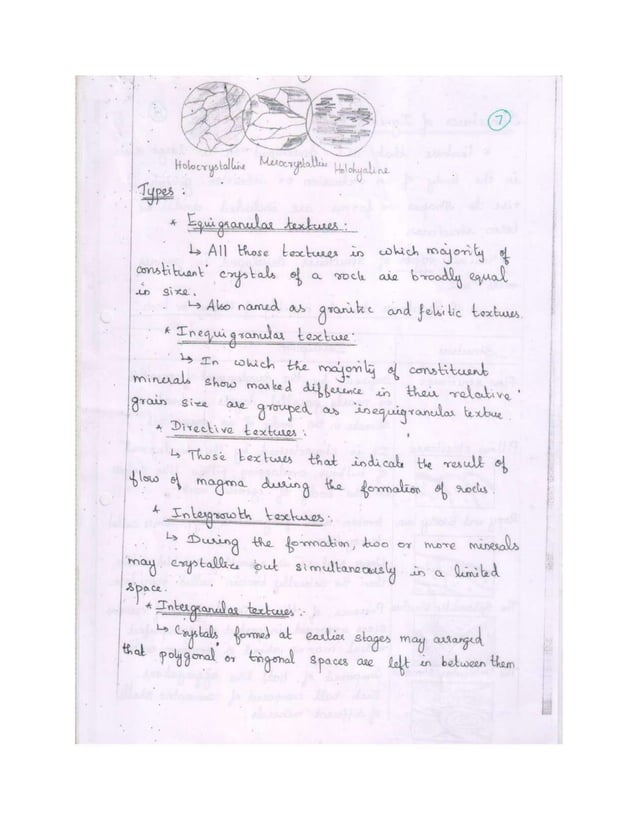 7
Holocrystalline Merocrystalline Holohyaline
Types :
* Equigranular textures :
↳ All those textures in which majority of
constituent crystals of a rock are broadly equal
in size.
↳ Also named as granitic and felsitic textures.
* Inequigranular texture:
↳ In which the majority of constituent
minerals show marked difference in their relative
grain size are grouped as inequigranular texture.
* Directive textures :
↳ Those textures that indicate the result of
flow of magma during the formation of rocks.
* Intergrowth textures:
↳ During the formation, two or more minerals
may crystallize out simultaneously in a limited
space.
* Intergranular textures :-
↳ Crystals formed at earlier stages may arranged
that polygonal or trigonal spaces are left in between them